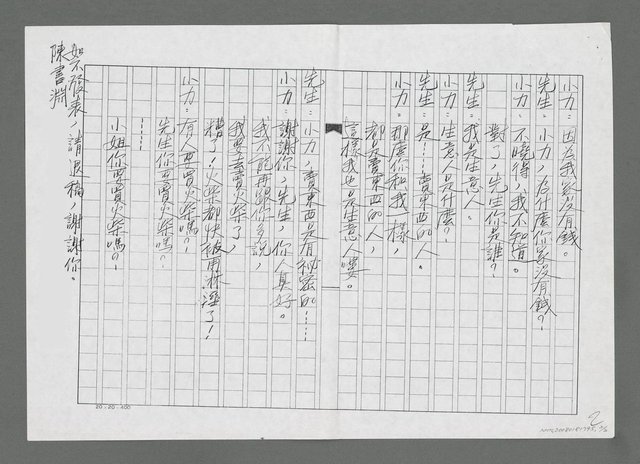 小力：因為我家沒有錢。
先生：小力，為什麼你家沒有錢？
小力：不曉得，我不知道。
對了，先生你是誰？
先生：我是生意人。
小力：生意人是什麼？
先生：是……賣東西的人。
小力：那麼你和我一樣，
都是賣東西的人，
這樣我也是生意人嘍。
先生：小力，賣東西是有秘密的……
小力：謝謝你，先生，你人真好。
我不能再跟你多說，
我要去賣火柴了，
糟了！火柴都快被雨淋溼了！
小力：有人要買火柴嗎？
先生你要買火柴嗎？
……
小姐你要買火柴嗎？
如不發表，請退稿，謝謝你。
陳書淵
20×20=400
2